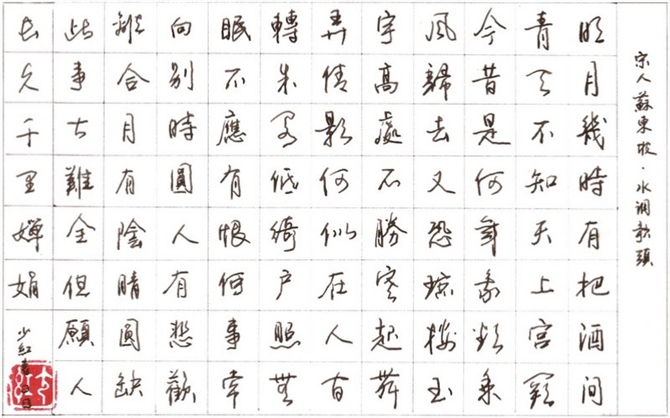 宋人蘇東坡·水调歌頭
明月幾時有把酒问
青天不知天上宫阙
今昔是何年我欲乘
风歸去又恐琼楼玉
宇高處不勝寒起舞
弄情影何似在人间
轉朱阁低绮户照无
眠不應有恨何事常
向别時圓人有悲歡
離合月有陰晴圓缺
此事古難全但願人
长久千里嬋娟
少红書